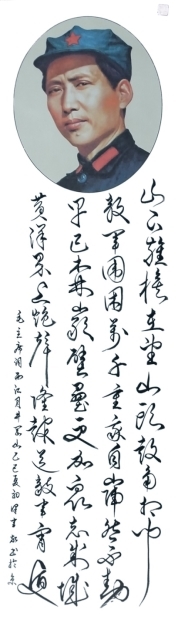 山下旌旗在望山头鼓角相闻
敵军围困萬千重我自岿然不動
早已森嚴壁壘更加众志成城
黄洋界上炮聲隆報道敵軍宵遁
毛主席词西江月井冈山己巳夏初